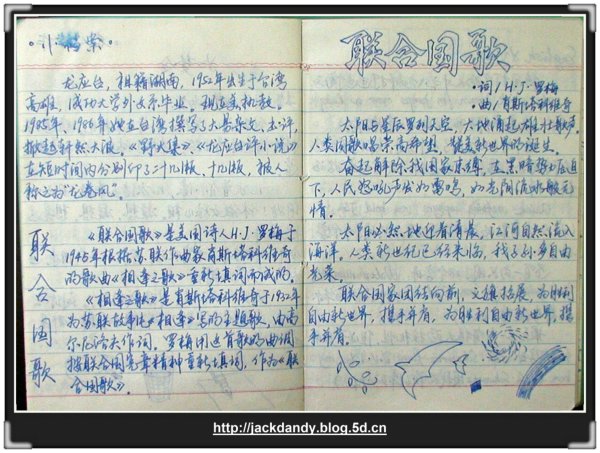 ·小档案·
龙应台，祖籍湖南，1952年出生于台湾
高雄，成功大学外文系毕业。现在美执教。
1985年、1986年她在台湾撰写了大量杂文、书评，
掀起轩然大波。《野火集》、《龙应台评小说》
在短时间内分别印了二十几版、十几版，被人
称之为“龙卷风”。
联合国歌
《联合国歌》是美国诗人H·J·罗梅于
1945年根据苏联作曲家肖斯塔科维奇
的歌曲《相逢之歌》重新填词而成的。
《相逢之歌》是肖斯塔科维奇于1932年
为苏联故事片《相逢》写的主题歌，由高
尔尼洛夫作词，罗梅用这首歌的曲调
按联合国宪章精神重新填词，作为《联
合国歌》。
联合国歌
·词/H·J·罗梅
·曲/肖斯塔科维奇
太阳与星辰罗列天空，大地涌起雄壮歌声。
人类同歌唱崇高希望，赞美新世界的诞生。
奋起解除我国家束缚，在黑暗势力压迫
下，人民怒吼声发如雷鸣，如光阴流水般无
情。
太阳必然地迎着清晨，江河自然流入
海洋。人类新世纪已经来临，我子孙多自由
光荣。
联合国家团结向前，义旗招展，为胜利
自由新世界，携手并肩。为胜利自由新世界，携
手并肩。
http://jackdandy.blog.5d.cn